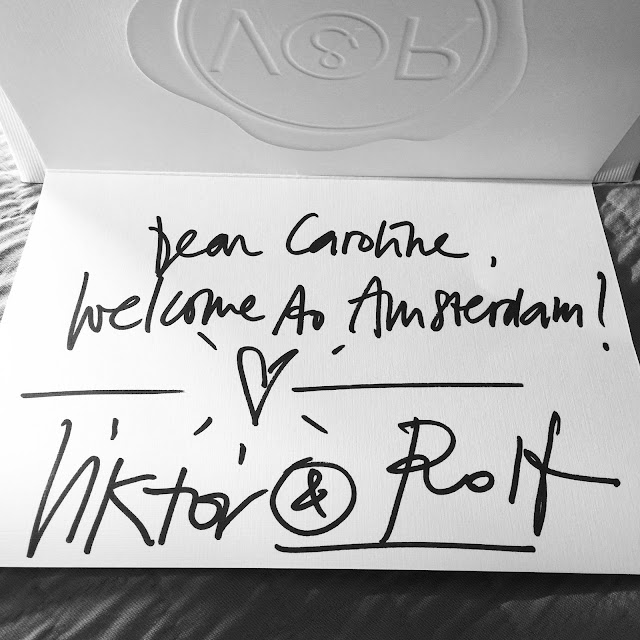 V&R
Dear Caroline,
Welcome to Amsterdam!
Viktor & Rolf